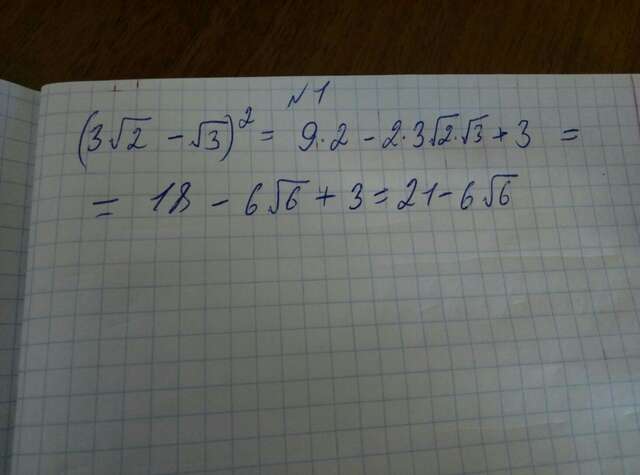 №1
(3√2 - √3)² = 9·2 - 2·3√2·√3 + 3 =
= 18 - 6√6 + 3 = 21 - 6√6